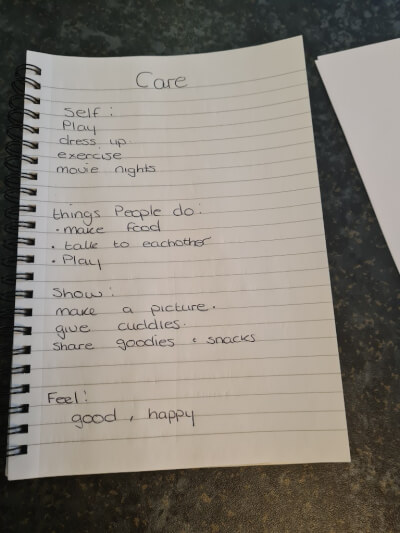 Care
Self :
Play
dress up.
exercise
movie nights
things People do:
• make food
• talk to eachother
• Play
Show:
make a picture.
give cuddles.
share goodies & snacks
Feel:
good, happy